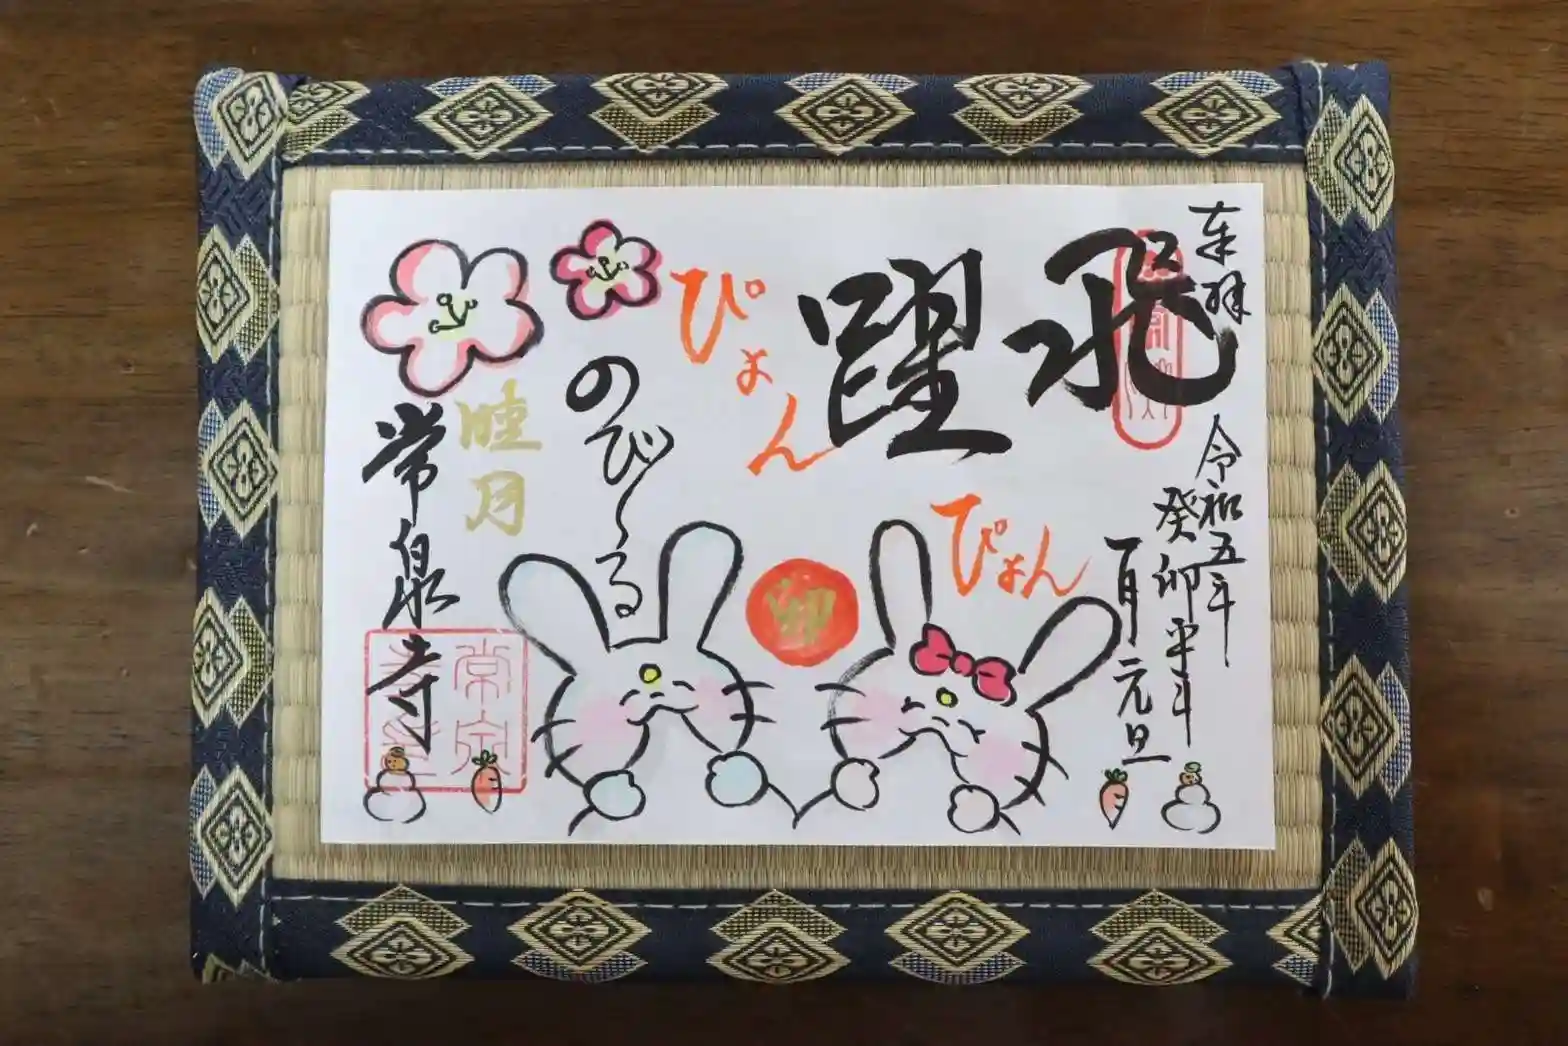 奉拝
令和五年
癸卯年
一月元旦
飛躍
ぴょん
ぴょん
卯
のび〜る
睦月
常泉寺